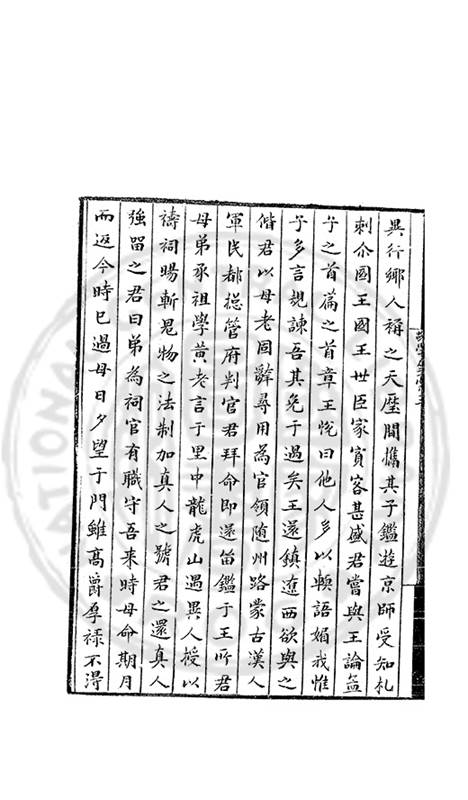 異行鄉人稱之天曆間攜其子鑑遊京師受知札
剌尒國王國王世臣家賓客甚盛君嘗與王論孟
子之首篇之首章王悅曰他人多以輭語媚我惟
子多言規諫吾其免于過矣王還鎮遼西欲與之
偕君以母老固辭尋用為官領随州路蒙古漢人
軍民都緫管府判官君拜命即還留鑑于王所君
母弟承祖學黄老言于里中龍虎山遇異人授以
禱祠暘斬鬼物之法制加真人之號君之還真人
強留之君曰弟為祠官有職守吾来時母命期月
而返今時已過母日夕望于門雖高爵厚禄不得